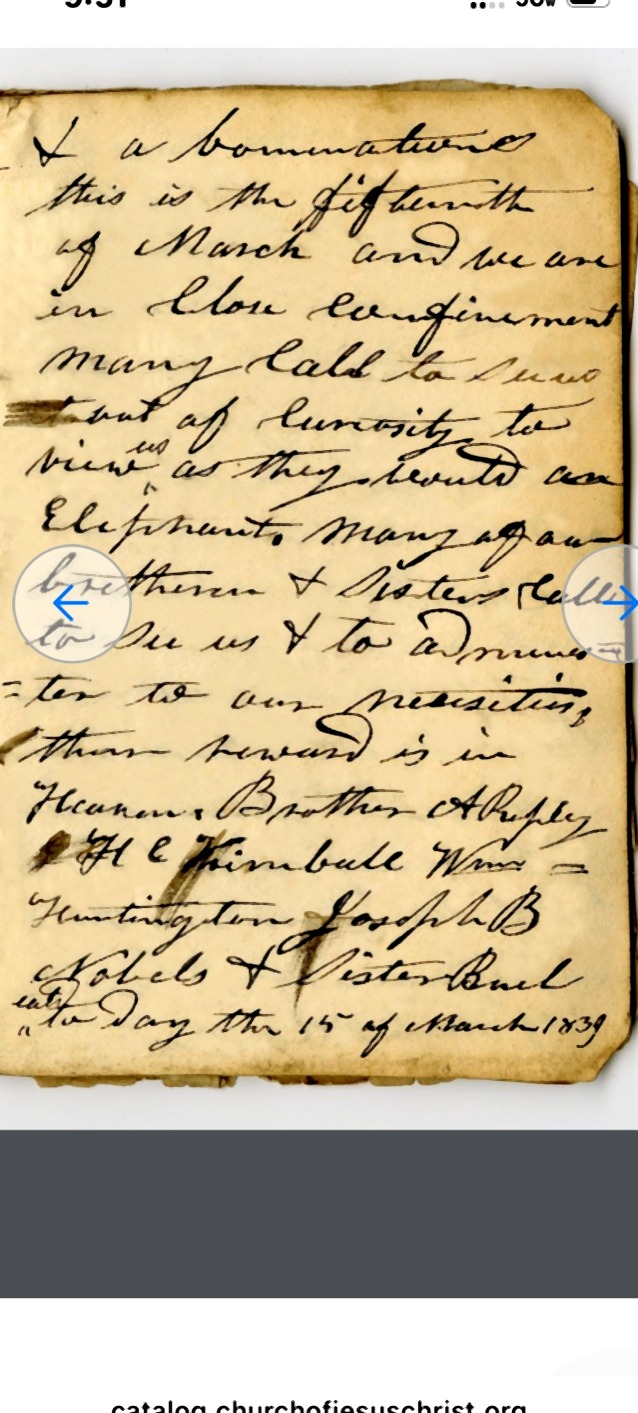 & a bominations
this is the fifteenth
of March and we are
in Close Confinement
many Call to see us
out of Curiosity to
view us as they would an
Elephant. many of our
bretheren & Sisters Calls
to See us & to adminis=
=ter to our necisities,
their reward is in
Heaven. Brother A Ripley
H C Kimball Wm =
Huntington Joseph B
Nobels & Sister Buel
to Day the 15 of March 1839
catalog.churchofjesuschrist.org